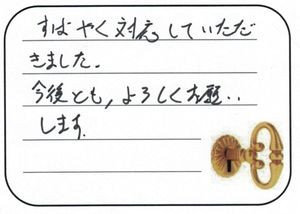 すばやく対応していただ
きました。
今後とも、よろしくお願い
します。